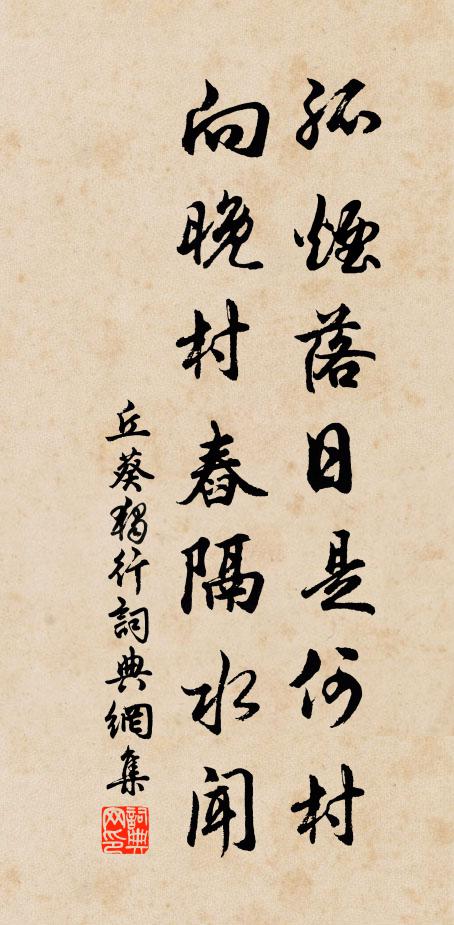 孤煙落日是何村
向晚村舂隔水闻
丘葵獨行詞典網集
詞典网印